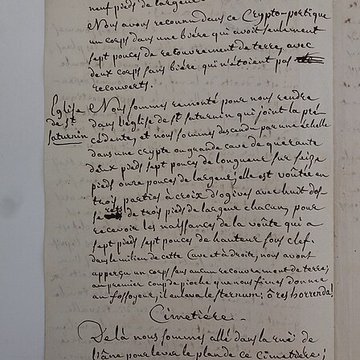 neuf pieds de largeur
Nous avons reconnu dans ce Crypto-portique
un corps dans une bière qui avoit seulement
sept pouces de recouvrement de terres, avec
deux corps sans bière qui n'étoient pas
recouverts.
Eglise
de St
saturnin
Nous sommes remonté pour nous rendre
dans l'église de st saturnin qui joint la pré-
cédente, et nous sommes descendu par une échelle
dans une crypte ou grande cave de quarante
deux pieds sept pouces de longueur sur seize
pieds onze pouces de largeur; elle est voutée en
trois parties à croix d'ogives avec huit dos-
serets de trois pieds de largeur chacun, pour
recevoir les naissances de la voûte qui a
sept pieds sept pouces de hauteur sous clef.
dans le milieu de cette Cave et à droite, nous avons
apperçu un corps sans aucun recouvrement de terre;
au premier coup de pioche que nous fimes donner
au fossoyeur, il enleva le sternum; ô res horrenda!
Cimetiere.
De là nous sommes allé dans la rue de
l'âne pour lever le plan de ce Cimetiere;